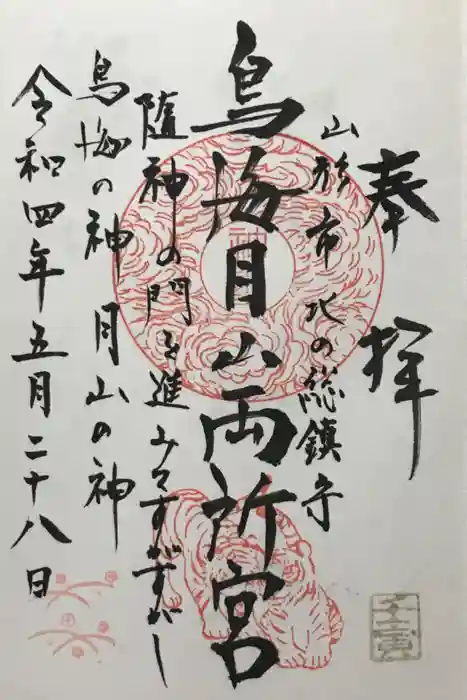 奉拝
山形市北の総鎮守
鳥海月山両所宮
随神の門を進みてすがすがし
鳥海の神月山の神
令和四年五月二十八日